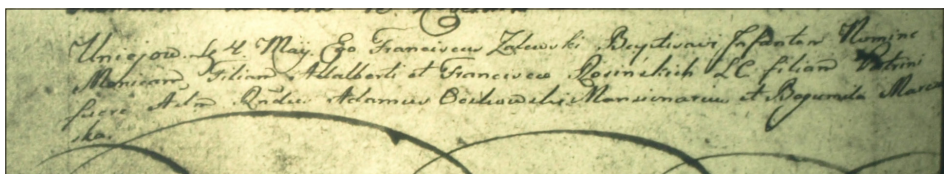 Uniejow. de 4 Maij. Ego Franciscus Zalewski Baptisavi Infantem Nomine
Monicam Filiam Adalberti et Francisca Rosinskich LC filiam Patrini
fuere Adm Rndus Adamus Mansionarius et Bogumila
ska.